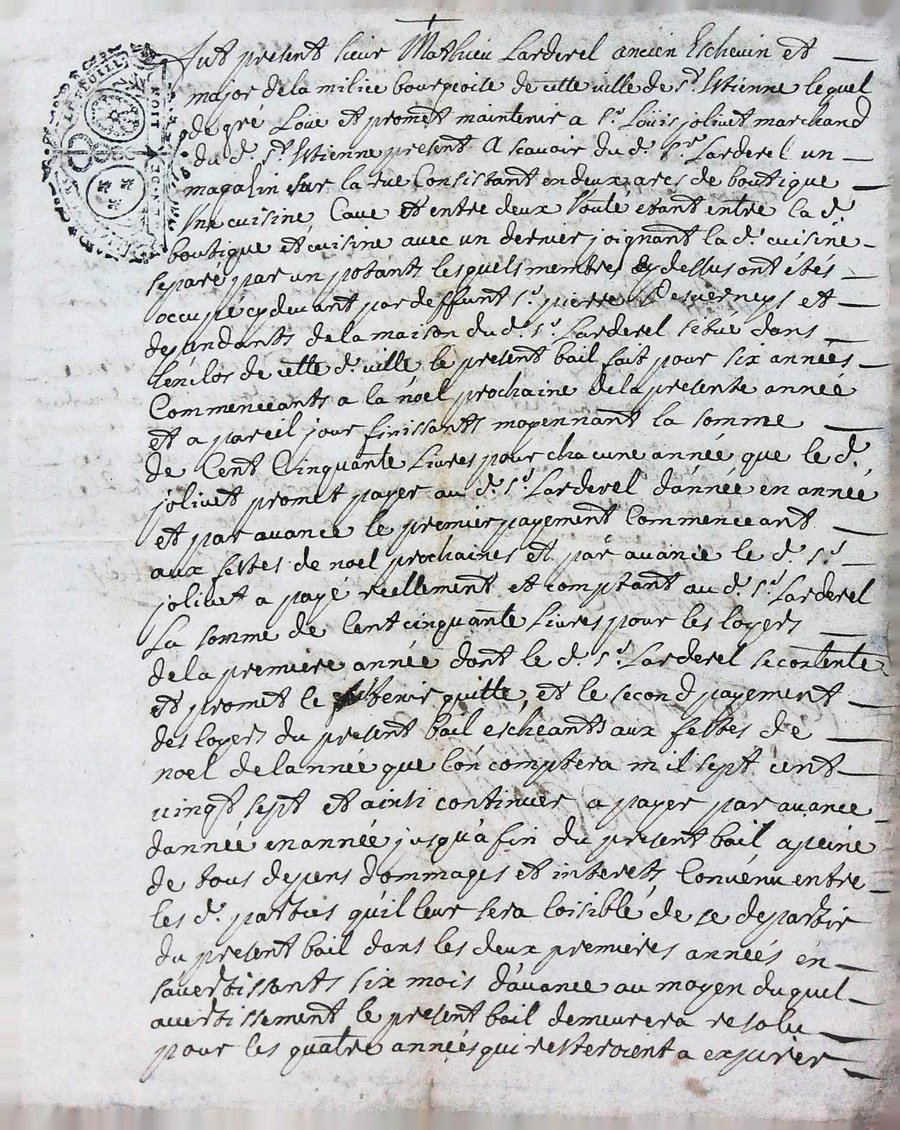 Fut present sieur Mathieu Larderel ancien Eschevin et
major de la milice bourgeoise de cette ville de St. Estienne lequel
de gré Loue et promet maintenir a Sr. Louis jolivet marchand
du d. St. Estienne present A scavoir du d. Sr. Larderel un
magasin sur la rue Consistant en deux arcs de boutique
une cuisine Cave et entre deux voute etant entre la d.
boutique et cuisine avec un dernier joignant la d. cuisine
separé par un potant lesquels membres cy dessus ont étés
occupé cy devant par deffunt Sr. pierre Desverneys et
dependants de la maison du d. Sr. Larderel scitué dans
l'enclos de cette d. ville le present bail fait pour six années
Commenceants a la noel prochaine de la presente année
et a pareil jour finissants moyennant la somme
de Cent Cinquante Livres pour chacune année que le d.
jolivet promet payer au d. Sr. Larderel d'année en année
et par avance le premier payement Commenceant
aux festes de noel prochaines et par avance le d. Sr.
jolivet a payé reellement et comptant au d. Sr. Larderel
La somme de Cent cinquante Livres pour les loyers
de la premiere année dont le d. Sr. Larderel se contente
et promet le tenir quitte, et le second payement
des loyers du present bail escheants aux festes de
noel de lannée que l'on comptera mil sept cent
vingt sept et ainsi continuer a payer par avance
dannée en année jusqu'a fin du present bail a peine
de tous depens dommages et interets Convenu entre
les d. parties qu'il leur sera loisible de se departir
du present bail dans les deux premieres années en
s'avertissants six mois d'avance au moyen duquel
avertissement le present bail demeurera resolu
pour les quatre années qui resteroient a expirer